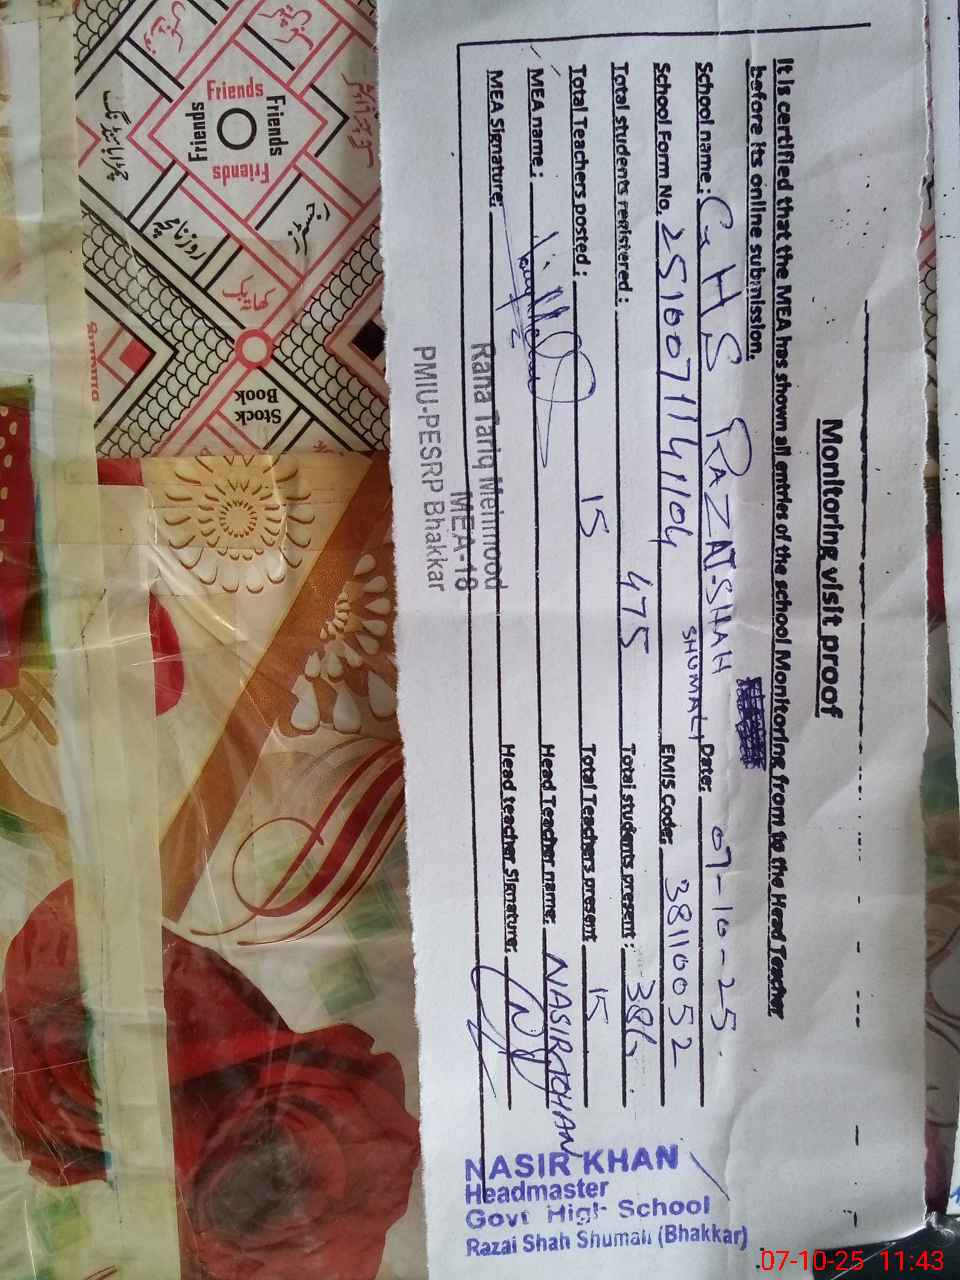 Monitoring visit proof
It is certified that the MEA has shown all entries of the school Monitoring from to the Head Teacher
before its online submission.
School name: GHS RAZAI SHAH SHUMALI Date: 07-10-25
School Form No. 2510071141104 EMIS Code: 38110052
Total students registered: 475 Total students present: 386
Total Teachers posted: 15 Total Teachers present 15
MEA name: Head Teacher name: NASIR KHAN
MEA Signature: Head teacher Signature:
Rana Tariq Mehmood
MEA-18
PMIU-PESRP Bhakkar
NASIR KHAN
Headmaster
Govt High School
Razai Shah Shumali (Bhakkar)
Friends
Friends
Friends
Friends
رجسٹرز
روزنامچہ
کھاتہ بک
Stock
Book
07-10-25 11:43